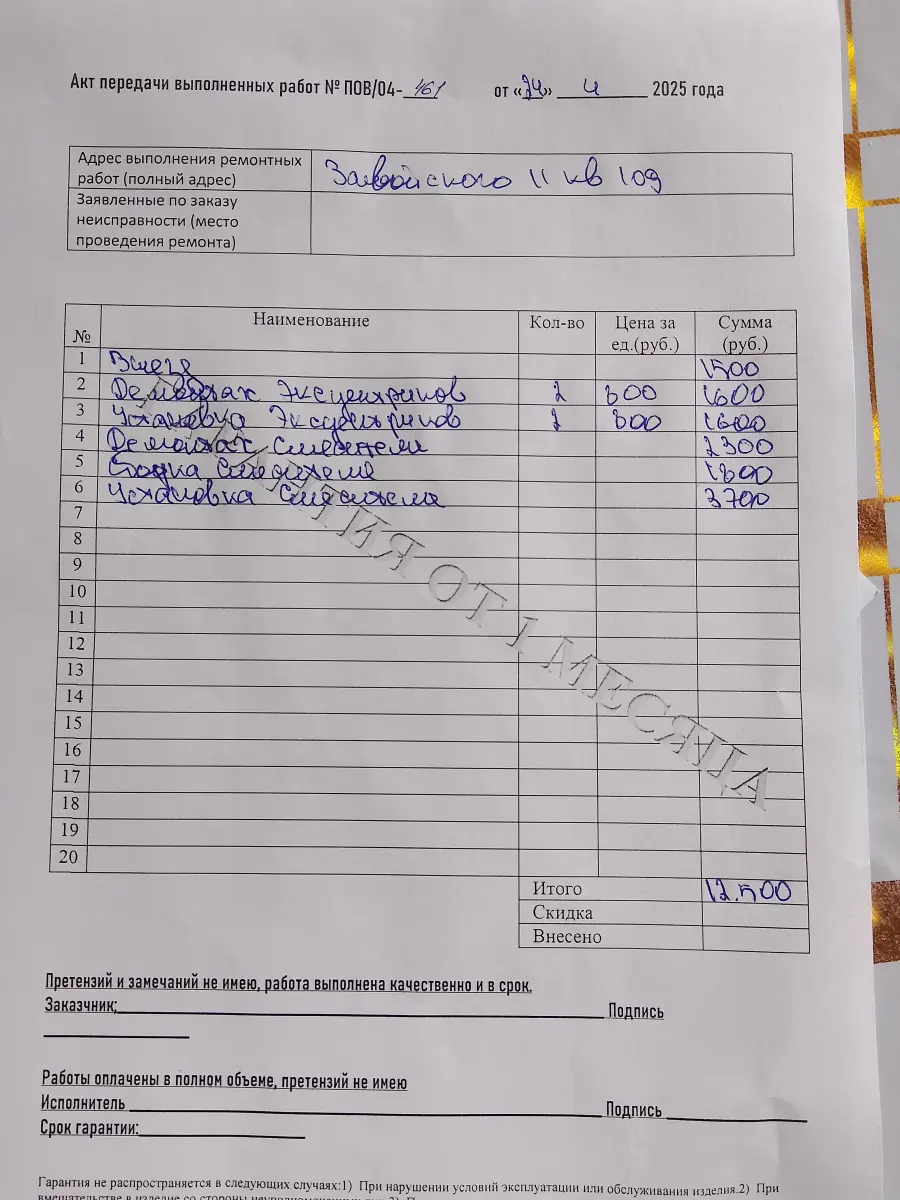 Акт передачи выполненных работ № ПОВ/04- 461 от «24» 4 2025 года
Адрес выполнения ремонтных работ (полный адрес) Завойского 11 кв 109
Заявленные по заказу неисправности (место проведения ремонта)
№ Наименование Кол-во Цена за ед.(руб.) Сумма (руб.)
1 1500
2 Демонтаж Эксцентриков 2 800 1600
3 Установка Эксцентриков 2 800 1600
4 Демонтаж Смесителя 2300
5 Смесителя 1800
6 Установка Смесителя 3700
7
8
9
10
11
12
13
14
15
16
17
18
19
20
ГАРАНТИЯ ОТ 1 МЕСЯЦА
Итого 12.500
Скидка
Внесено
Претензий и замечаний не имею, работа выполнена качественно и в срок.
Заказчик: Подпись
Работы оплачены в полном объеме, претензий не имею
Исполнитель Подпись
Срок гарантии:
Гарантия не распространяется в следующих случаях:1) При нарушении условий эксплуатации или обслуживания изделия.2) При
вмешательстве в изделие со стороны